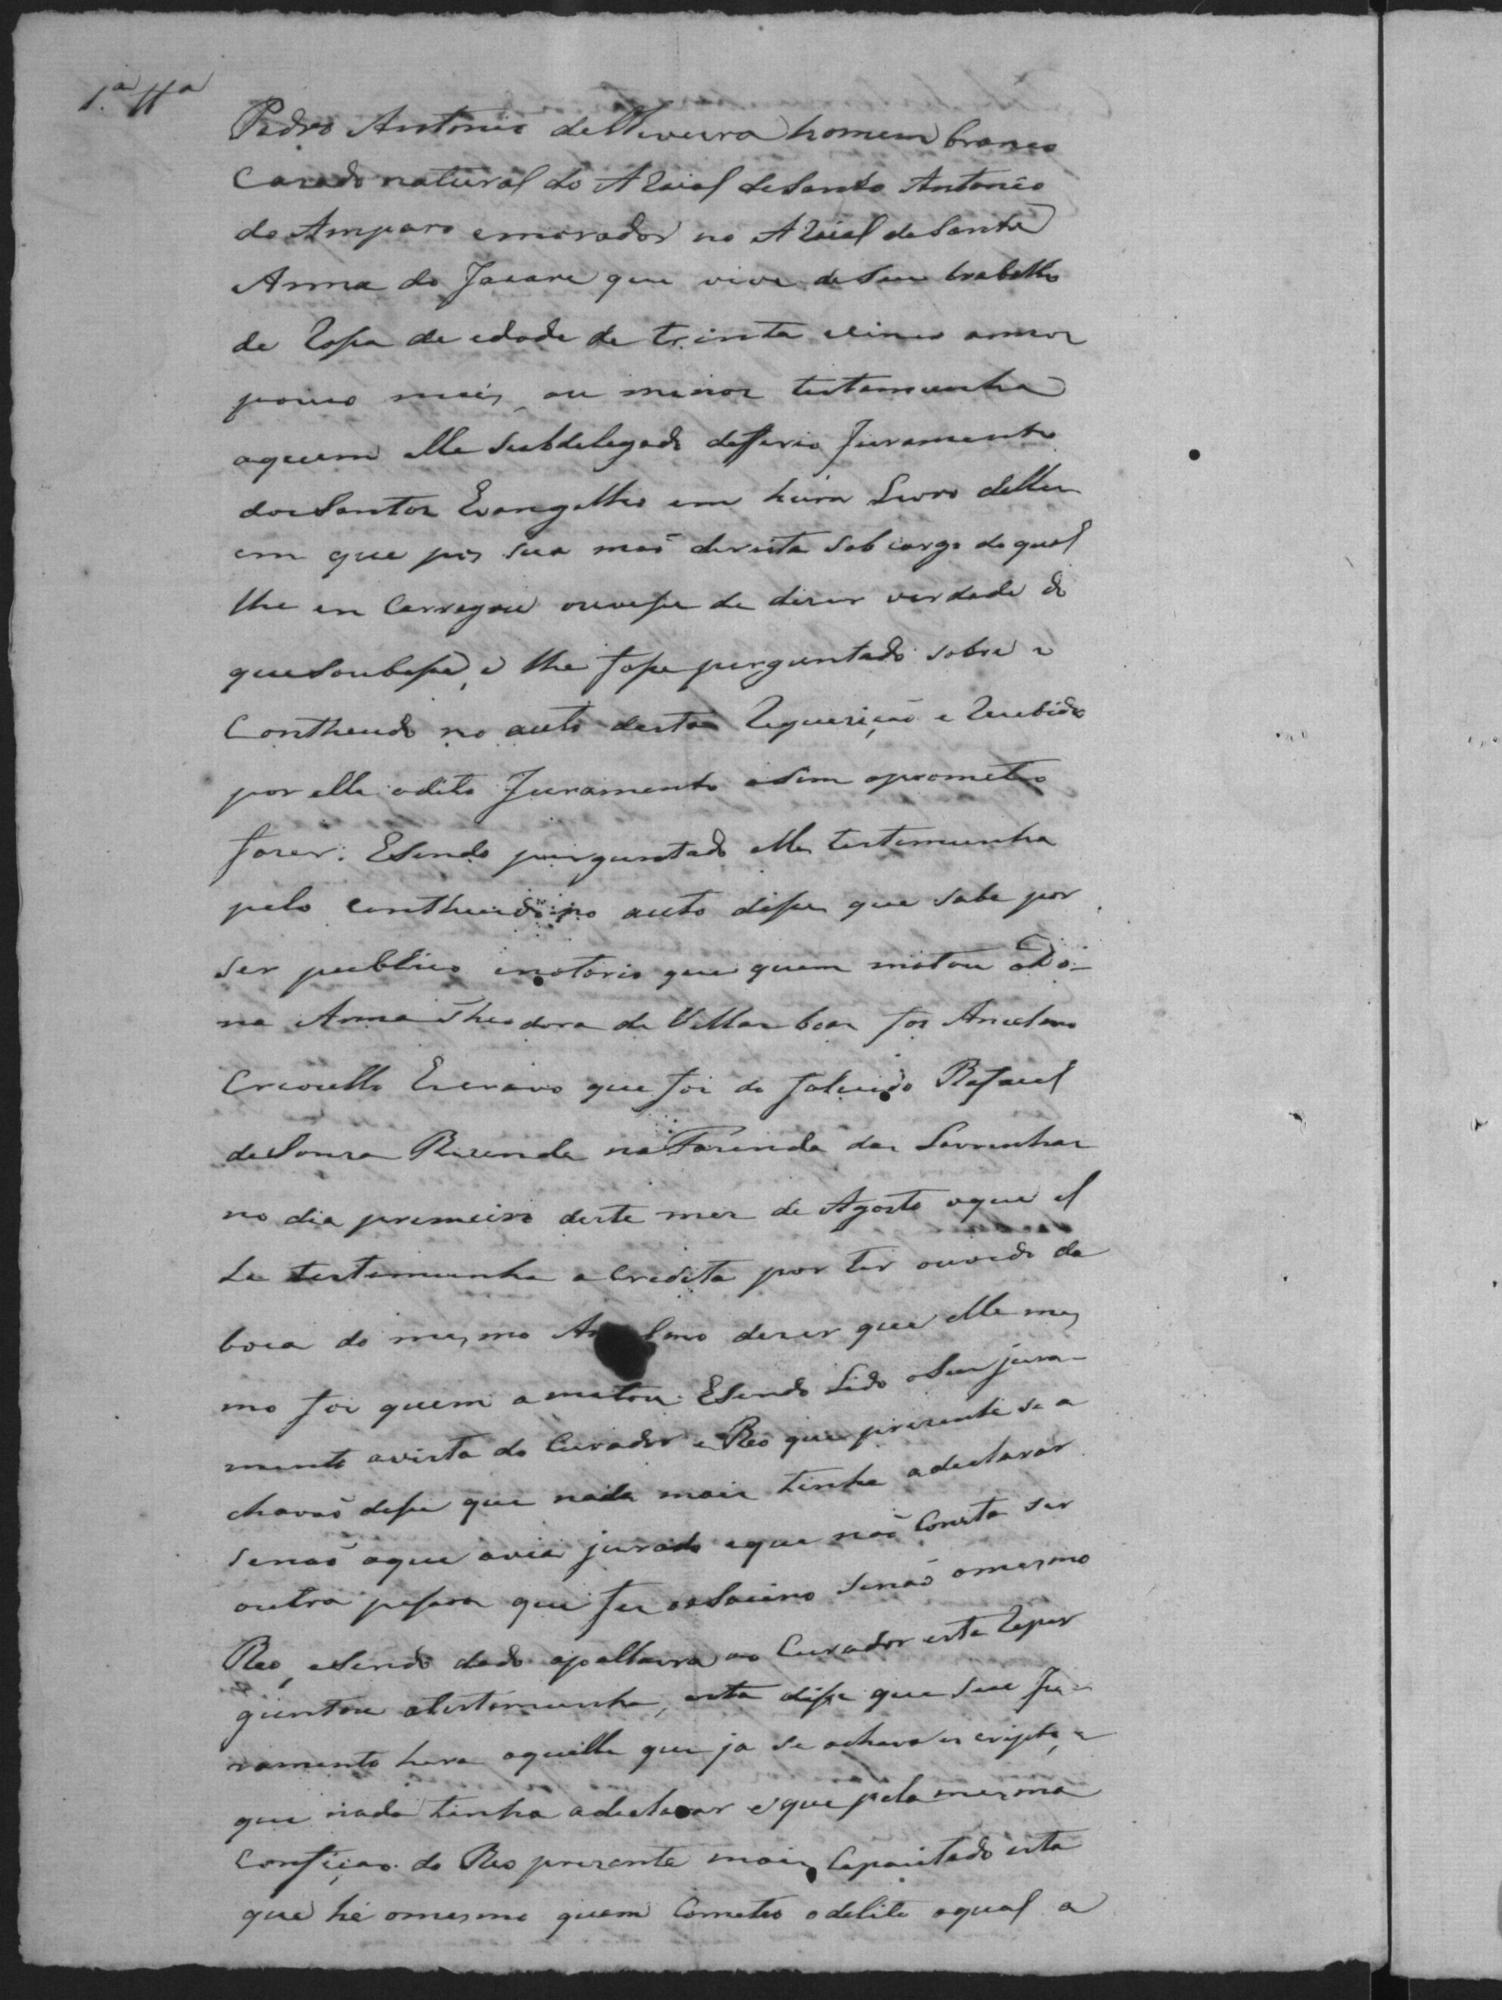 1.ª Ttª
Pedro Antonio deOliveira homem branco
Cazado natural do ARaial deSanto Antonio
do Amparo emorador no ARaial deSanta
Anna do Jacare que vive deSeu trabalho
de Rossa de edade de trinta ecinco annos
pouco mais, ou menos testemunha
aquem elle Subdelegado defferio Juramento
dosSantos Evangelhos em hum Livro delles
em que pos sua mão dereita sob cargo do qual
lhe en Carregou ouvesse de dizer verdade do
queSoubesse, e lhe fosse perguntado sobre o
Contheudo no auto desta Requerição e Recebido
por elle odito Juramento asim oprometeo
fazer. ESendo perguntado elle testemunha
pelo contheudo no auto disse que sabe por
ser publico enotorio que quem matou aDo-
na Anna Theodora de Villas boas foi Ancelmo
Crioullo Escravo que foi do falecido Rafael
deSouza Rezende na Fazenda das Lavrinhas
no dia premeiro deste mez de Agosto oque el
Le testemunha aCredita por ter ouvido da
boca do mesmo An lmo dezer que elle mes
mo foi quem amatou. ESendo Lido oSeu jura-
mento avista do Curador e Reo que prezente se a
chavão disse que nada mais tinha adeclarar
senão oque avia jurado eque não Consta ser
outra pessoa que fez oaSacino senão omesmo
Reo, eSendo dado apallavra ao Curador este Reper
guntou atestemunha, esta disse que seu Ju-
ramento hera aquelle que ja se achava escripto, e
que nada tinha adeclarar eque pela mesma
Confiçao do Reo prezente mais Capacitado esta
que hé omesmo quem Cometeo odelito oqual a